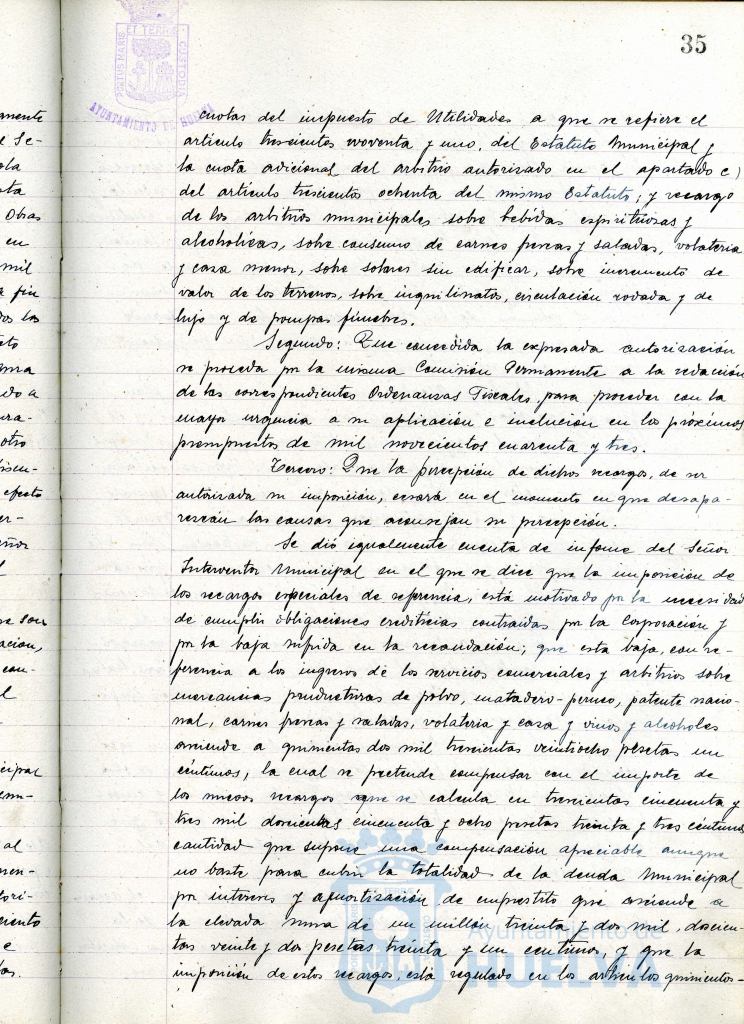 35
PORTUS MARIS ET TERRAE CUSTODIA
AYUNTAMIENTO DE HUELVA
cuotas del impuesto de Utilidades a que se refiere el
artículo trescientos noventa y uno, del Estatuto Municipal y
la cuota adicional del arbitrio autorizado en el apartado c)
del artículo trescientos ochenta del mismo Estatuto; y recargo
de los arbitrios municipales sobre bebidas espirituosas y
alcoholicas, sobre consumo de carnes frescas y saladas, volateria
y caza menor, sobre solares sin edificar, sobre incremento de
valor de los terrenos, sobre inquilinatos, circulación rodada y de
lujo y de pompas fúnebres.
Segundo: Que concedida la expresada autorización
se proceda por la misma Comisión Permanente a la redacción
de las correspondientes Ordenanzas Fiscales, para proceder con la
mayor urgencia a su aplicación e inclusión en los próximos
presupuestos de mil novecientos cuarenta y tres.
Tercero: Que la percepción de dichos recargos, de ser
autorizada su imposición, cesará en el momento en que desapa-
rezcan las causas que aconsejan su percepción.
Se dió igualmente cuenta de informe del Señor
Interventor Municipal en el que se dice que la imposición de
los recargos especiales de referencia, está motivado por la necesidad
de cumplir obligaciones crediticias contraidas por la Corporación y
por la baja sufrida en la recaudación; que esta baja, con re-
ferencia a los ingresos de los servicios comerciales y arbitrios sobre
mercancias productoras de polvo, matadero-perneo, patente nacio-
nal, carnes frescas y saladas, volateria y caza y vinos y alcoholes
asciende a quinientas dos mil trescientas veintiocho pesetas un
céntimos, la cual se pretende compensar con el importe de
los nuevos recargos que se calcula en trescientas cincuenta y
tres mil doscientas cincuenta y ocho pesetas treinta y tres céntimos
cantidad que supone una compensación apreciable aunque
no baste para cubrir la totalidad de la deuda Municipal
por intereses y amortización de emprestito que asciende a
la elevada suma de un millón treinta y dos mil, doscien-
tas veinte y dos pesetas treinta y un centimos, y que la
imposición de estos recargos, está regulado en los artículos quinientos-
Ayuntamiento de
HUELVA